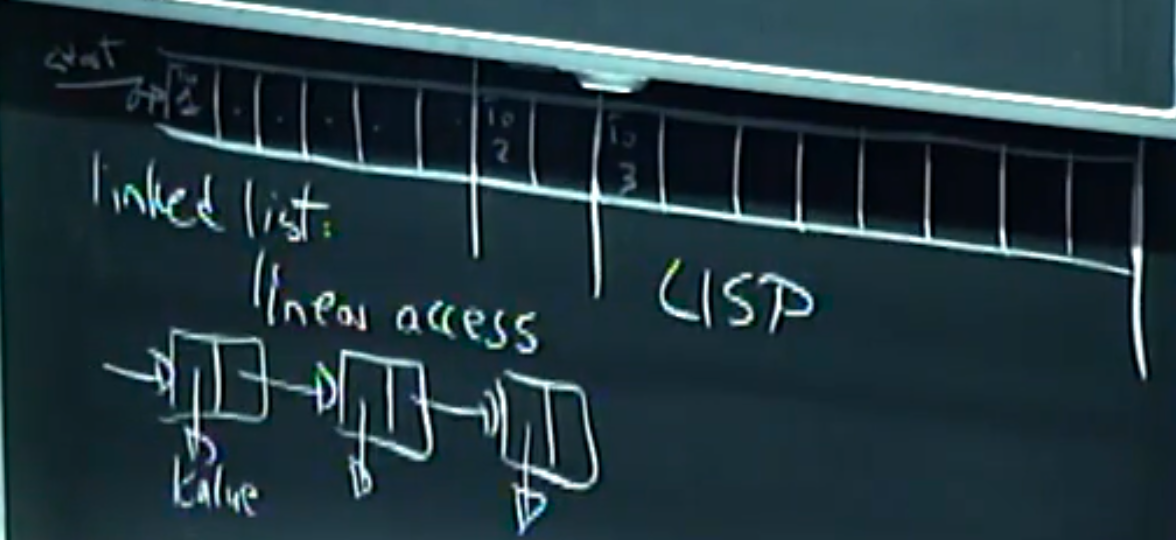 start
To To To
1 2 3
linked list:
linear access
LISP
value